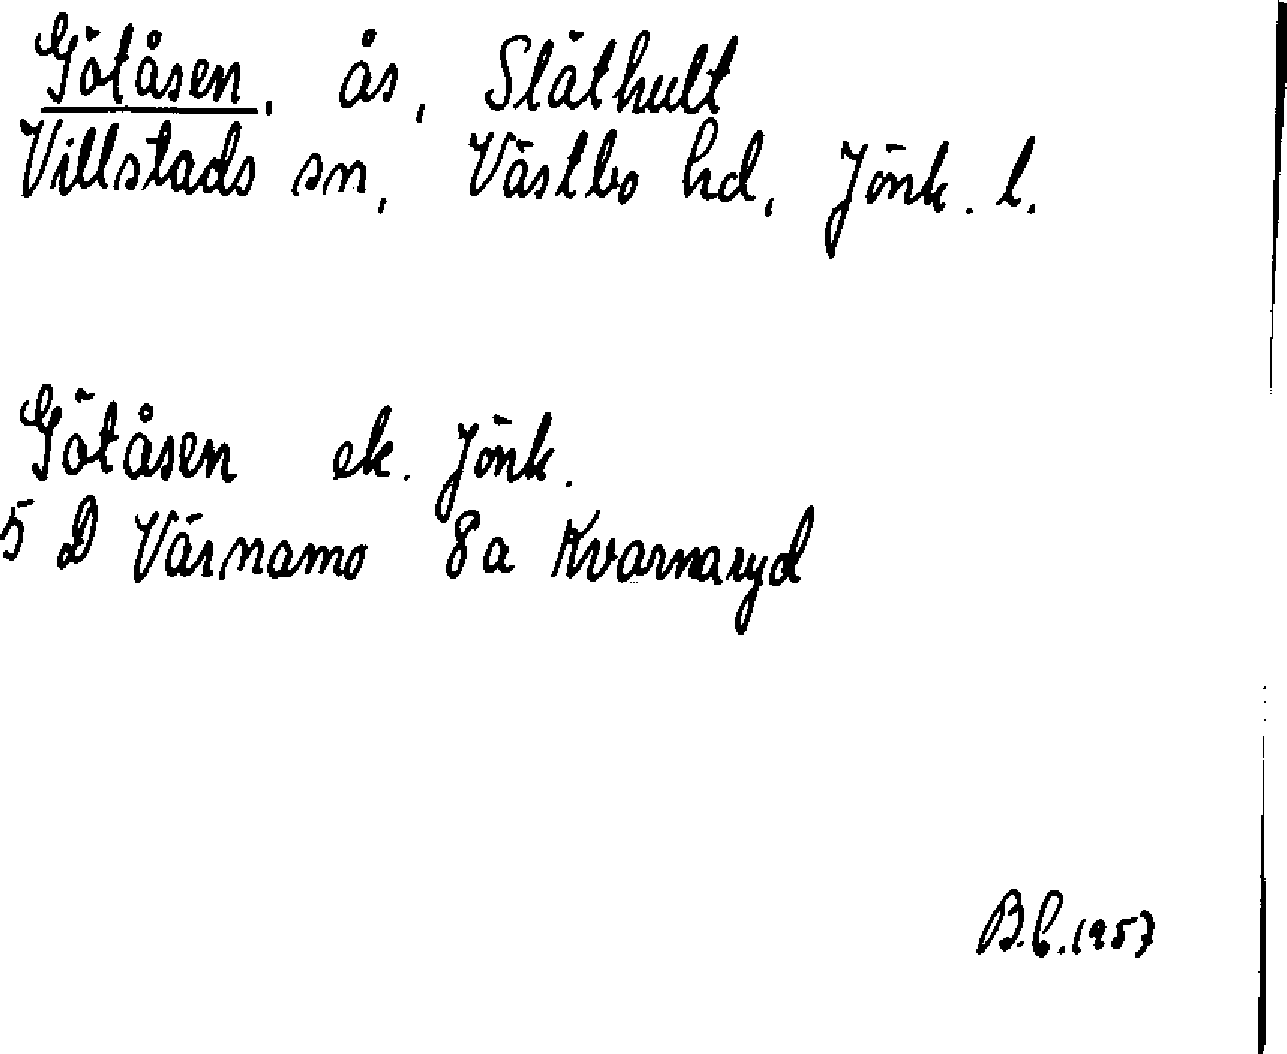 Götåsen, ås, Släthult
Villstads sn, Västbo hd, Jönk. l.
Götåsen ek. Jönk.
5 D Värnamo 8a Kvarnaryd
B.C. 1957